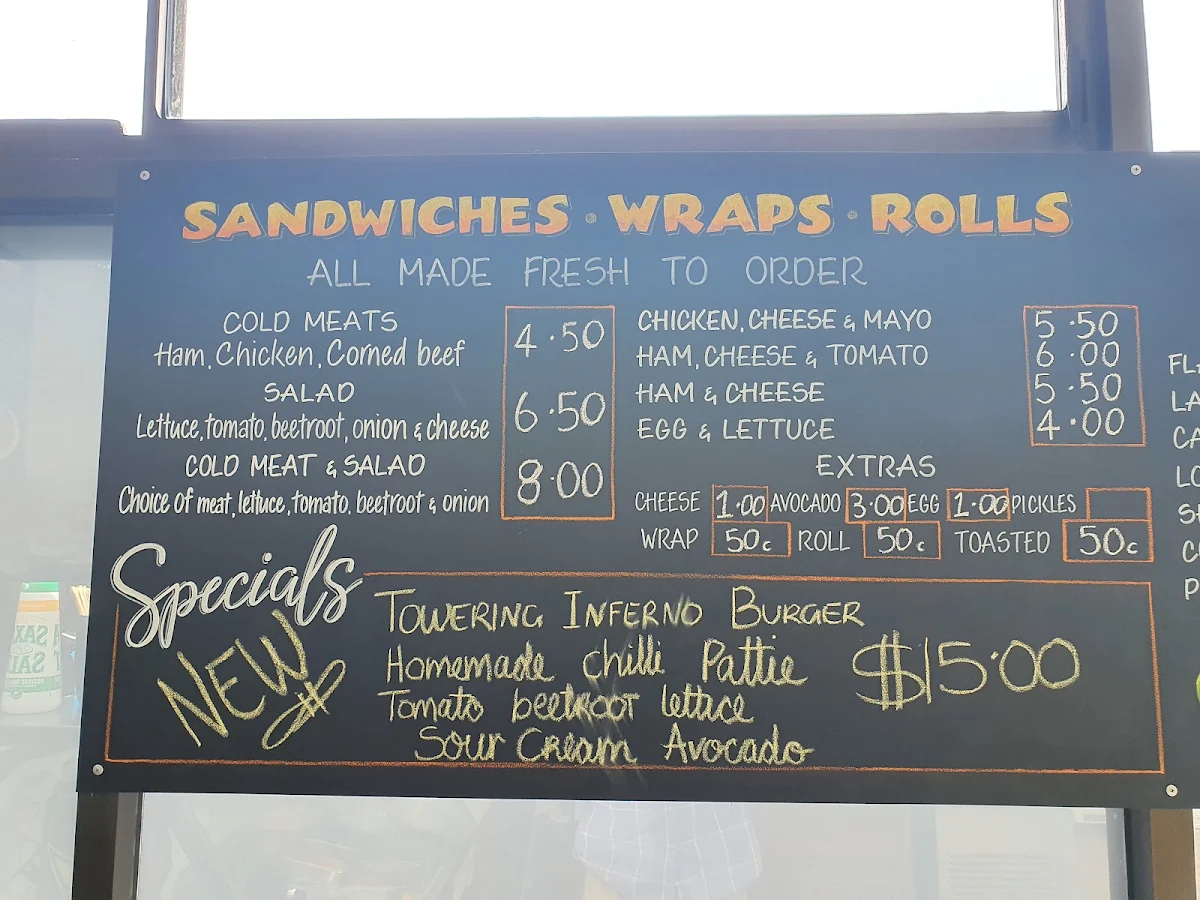 SANDWICHES · WRAPS · ROLLS
ALL MADE FRESH TO ORDER
COLD MEATS
Ham, Chicken, Corned beef
4.50
SALAD
Lettuce, tomato, beetroot, onion & cheese
6.50
COLD MEAT & SALAD
Choice of meat, lettuce, tomato, beetroot & onion
8.00
CHICKEN, CHEESE & MAYO 5.50
HAM, CHEESE & TOMATO 6.00
HAM & CHEESE 5.50
EGG & LETTUCE 4.00
EXTRAS
CHEESE 1.00 AVOCADO 3.00 EGG 1.00 PICKLES
WRAP 50c ROLL 50c TOASTED 50c
Specials
NEW
TOWERING INFERNO BURGER
Homemade chilli Pattie
Tomato beetroot lettice
Sour Cream Avocado
$15.00